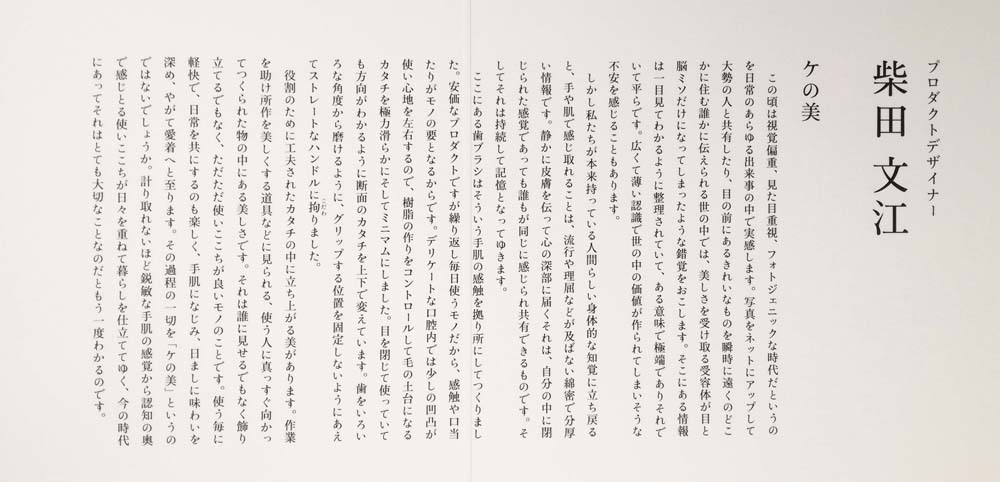 プロダクトデザイナー
柴田 文江
ケの美
この頃は視覚偏重、見た目重視、フォトジェニックな時代だというの
を日常のあらゆる出来事の中で実感します。写真をネットにアップして
大勢の人と共有したり、目の前にあるきれいなものを瞬時に遠くのどこ
かに住む誰かに伝えられる世の中では、美しさを受け取る受容体が目と
脳ミソだけになってしまったような錯覚をおこします。そこにある情報
は一目見てわかるように整理されていて、ある意味で極端でありそれで
いて平らです。広くて薄い認識で世の中の価値が作られてしまいそうな
不安を感じることもあります。
しかし私たちが本来持っている人間らしい身体的な知覚に立ち戻る
と、手や肌で感じ取れることは、流行や理屈などが及ばない綿密で分厚
い情報です。静かに皮膚を伝って心の深部に届くそれは、自分の中に閉
じられた感覚であっても誰もが同じに感じられ共有できるものです。そ
してそれは持続して記憶となってゆきます。
ここにある歯ブラシはそういう手肌の感触を拠り所にしてつくりまし
た。安価なプロダクトですが繰り返し毎日使うモノだから、感触や口当
たりがモノの要となるからです。デリケートな口腔内では少しの凹凸が
使い心地を左右するので、樹脂の作りをコントロールして毛の土台になる
カタチを極力滑らかにそしてミニマムにしました。目を閉じて使っていて
も方向がわかるように断面のカタチを上下で変えています。歯をいろい
ろな角度から磨けるように、グリップする位置を固定しないようにあえ
てストレートなハンドルに拘りました。
こだわ
役割のために工夫されたカタチの中に立ち上がる美があります。作業
を助け所作を美しくする道具などに見られる、使う人に真っすぐ向かっ
てつくられた物の中にある美しさです。それは誰に見せるでもなく飾り
立てるでもなく、ただただ使いここちが良いモノのことです。使う毎に
軽快で、日常を共にするのも楽しく、手肌になじみ、日ましに味わいを
深め、やがて愛着へと至ります。その過程の一切を「ケの美」というの
ではないでしょうか。計り取れないほど鋭敏な手肌の感覚から認知の奥
で感じとる使いここちが日々を重ねて暮らしを仕立ててゆく、今の時代
にあってそれはとても大切なことなのだともう一度わかるのです。